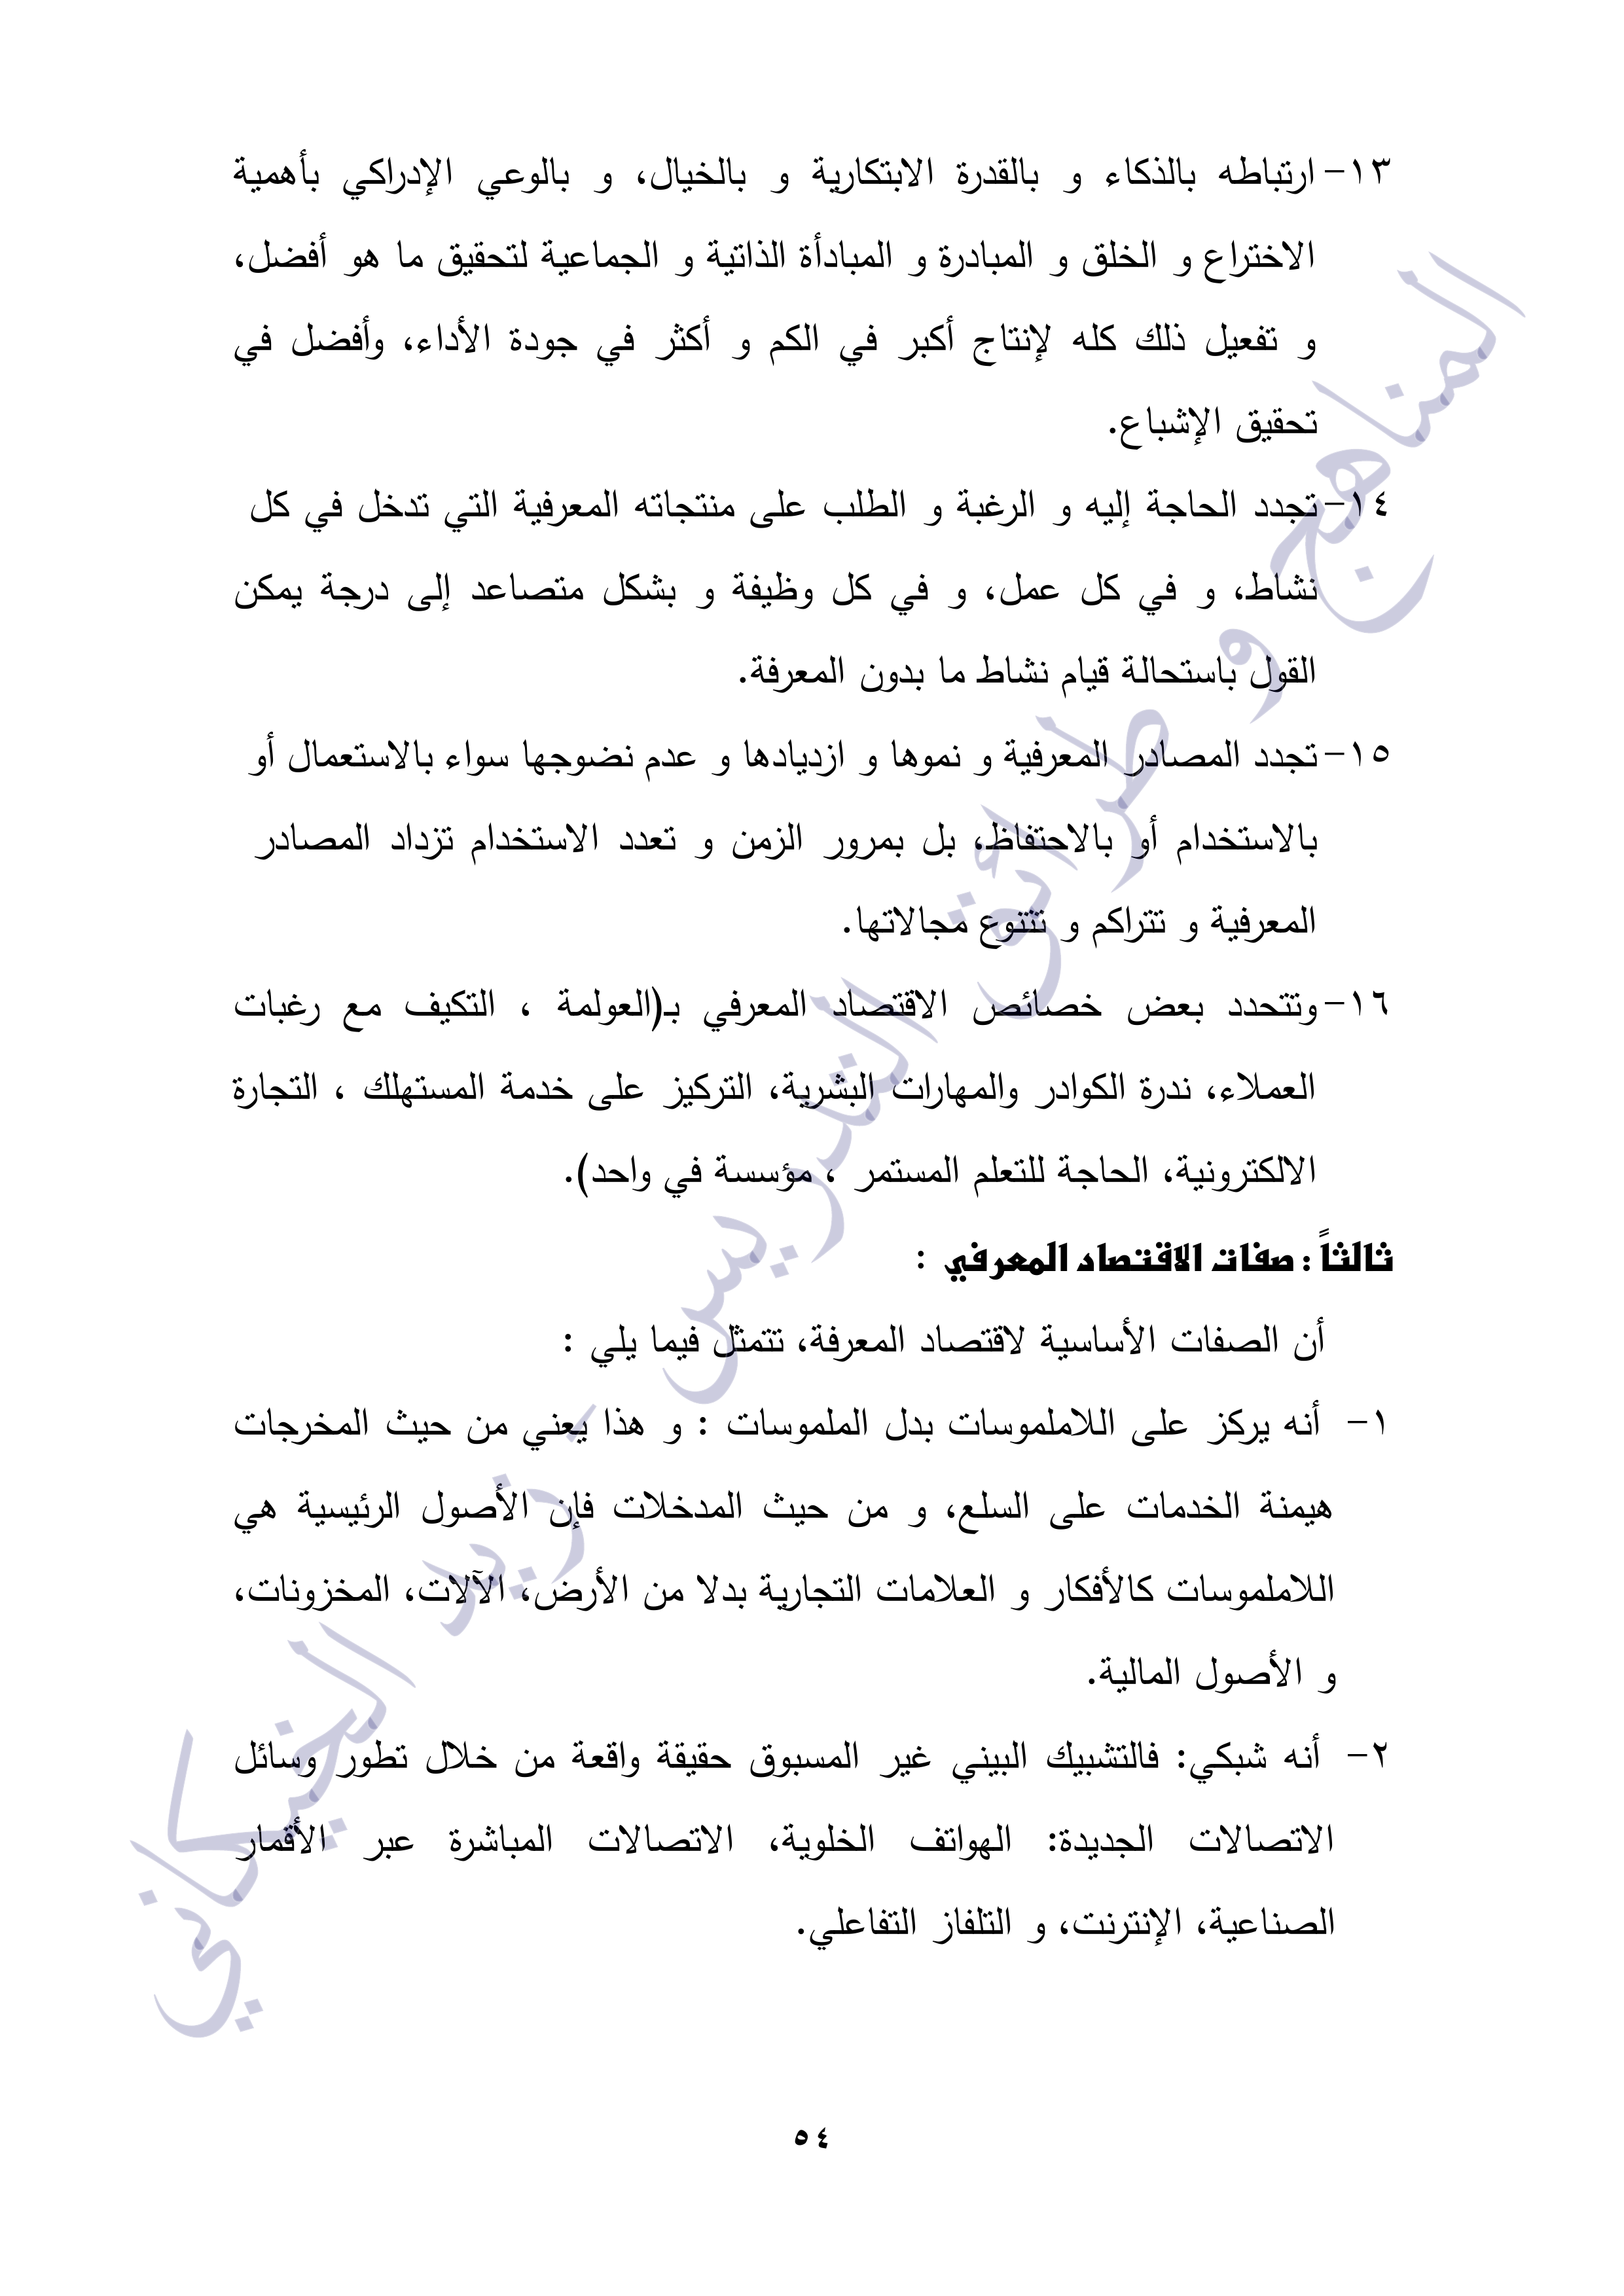 ١٣- ارتباطه بالذكاء و بالقدرة الابتكارية و بالخيال، و بالوعي الإدراكي بأهمية
الاختراع و الخلق و المبادرة و المبادأة الذاتية و الجماعية لتحقيق ما هو أفضل،
و تفعيل ذلك كله لإنتاج أكبر في الكم و أكثر في جودة الأداء، وأفضل في
تحقيق الإشباع.
١٤- تجدد الحاجة إليه و الرغبة و الطلب على منتجاته المعرفية التي تدخل في كل
نشاط، و في كل عمل، و في كل وظيفة و بشكل متصاعد إلى درجة يمكن
القول باستحالة قيام نشاط ما بدون المعرفة.
١٥- تجدد المصادر المعرفية و نموها و ازديادها و عدم نضوجها سواء بالاستعمال أو
بالاستخدام أو بالاحتفاظ، بل بمرور الزمن و تعدد الاستخدام تزداد المصادر
المعرفية و تتراكم و تتنوع مجالاتها.
١٦- وتتحدد بعض خصائص الاقتصاد المعرفي بـ(العولمة ، التكيف مع رغبات
العملاء، ندرة الكوادر والمهارات البشرية، التركيز على خدمة المستهلك ، التجارة
الالكترونية، الحاجة للتعلم المستمر ، مؤسسة في واحد).
ثالثاً : صفات الاقتصاد المعرفي :
أن الصفات الأساسية لاقتصاد المعرفة، تتمثل فيما يلي :
١- أنه يركز على اللاملموسات بدل الملموسات : و هذا يعني من حيث المخرجات
هيمنة الخدمات على السلع، و من حيث المدخلات فإن الأصول الرئيسية هي
اللاملموسات كالأفكار و العلامات التجارية بدلا من الأرض، الآلات، المخزونات،
و الأصول المالية.
٢- أنه شبكي: فالتشبيك البيني غير المسبوق حقيقة واقعة من خلال تطور وسائل
الاتصالات الجديدة: الهواتف الخلوية، الاتصالات المباشرة عبر الأقمار
الصناعية، الإنترنت، و التلفاز التفاعلي.
المناهج و طرائق التدريس - زيد الخيكاني
٥٤